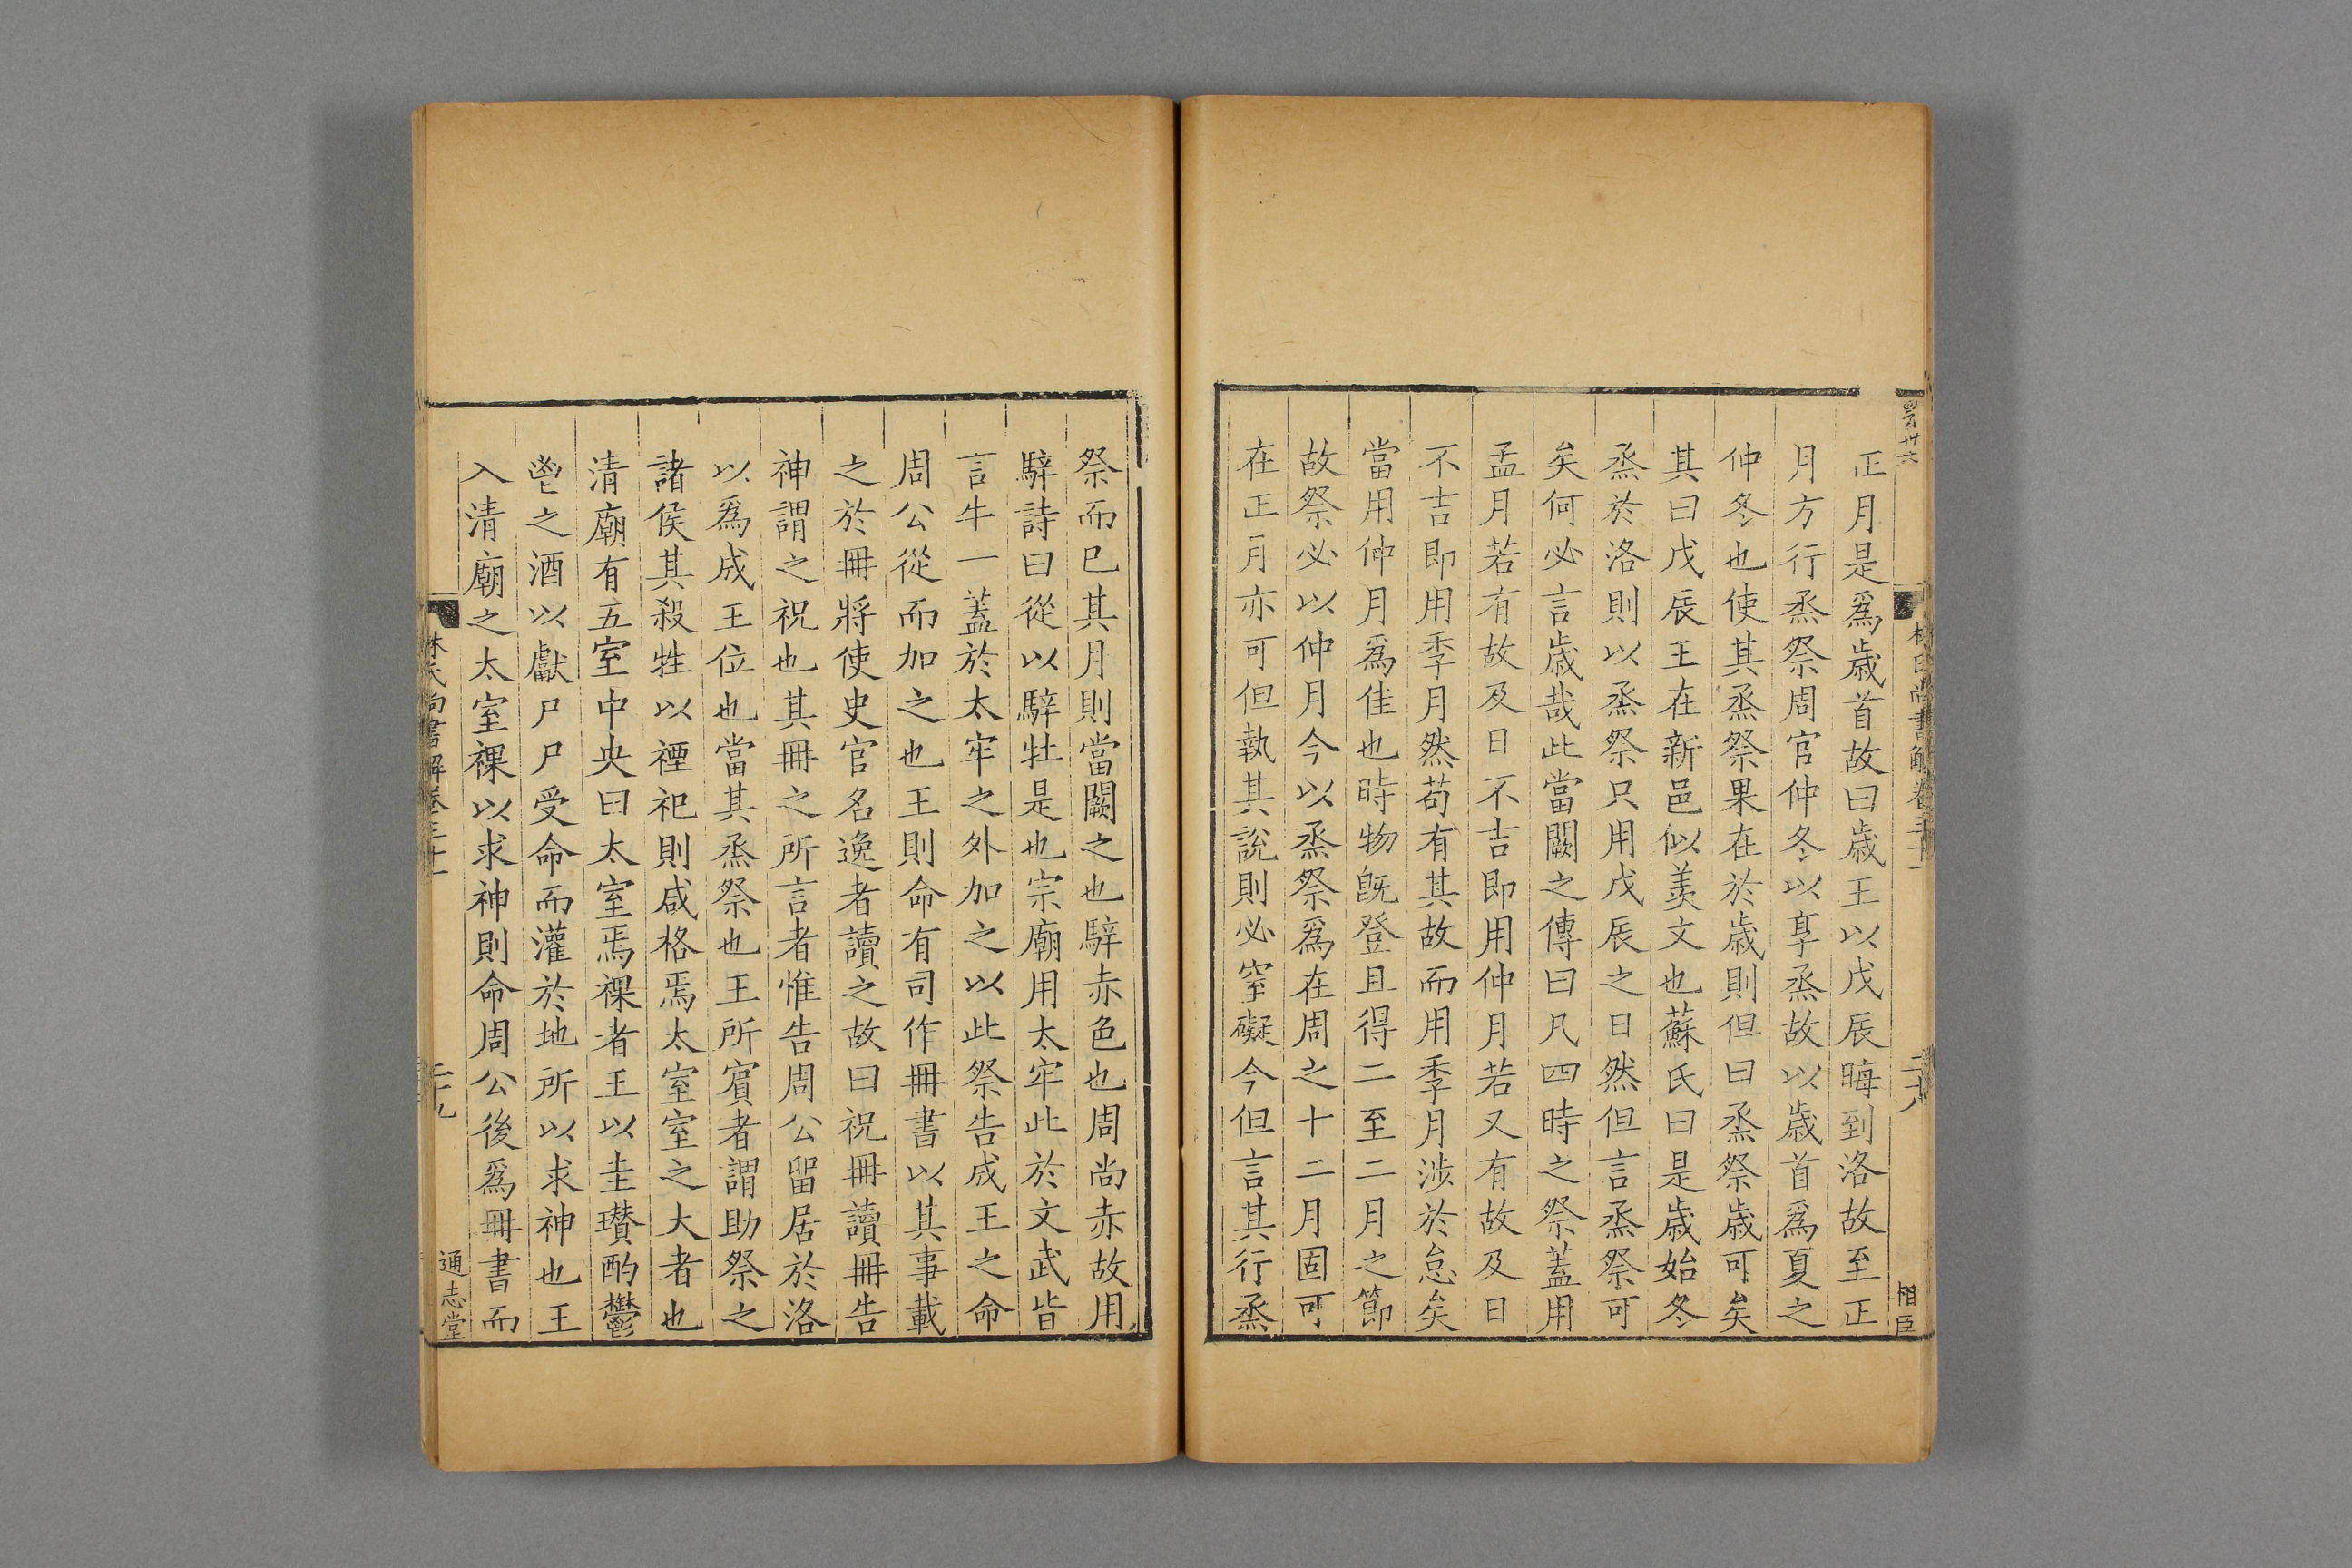 正月是爲歳首故曰歳王以戊辰晦到洛故至正
月方行烝祭周官仲冬以享烝故以歳首爲夏之
仲冬也使其烝祭果在於歳則但曰烝祭歳可矣
其曰戊辰王在新邑似羨文也蘇氏曰是歳始冬
烝於洛則以烝祭只用戊辰之日然但言烝祭可
矣何必言歳哉此當闕之傳曰凡四時之祭蓋用
孟月若有故及日不吉即用仲月若又有故及日
不吉即用季月然苟有其故而用季月涉於怠矣
當用仲月爲佳也時物旣登且得二至二月之節
故祭必以仲月今以烝祭爲在周之十二月固可
在正月亦可但執其說則必窒礙今但言其行烝
林氏尚書解卷三十一
二十八
相臣
祭而巳其月則當闕之也騂赤色也周尚赤故用
騂詩曰從以騂牡是也宗廟用太牢此於文武皆
言牛一蓋於太牢之外加之以此祭告成王之命
周公從而加之也王則命有司作冊書以其事載
之於冊將使史官名逸者讀之故曰祝冊讀冊告
神謂之祝也其冊之所言者惟告周公留居於洛
以爲成王位也當其烝祭也王所賓者謂助祭之
諸侯其殺牲以禋祀則咸格焉太室室之大者也
清廟有五室中央曰太室焉祼者王以圭瓚酌鬱
鬯之酒以獻尸尸受命而灌於地所以求神也王
入清廟之太室祼以求神則命周公後爲冊書而
林氏尚書解卷三十一
二十九
通志堂